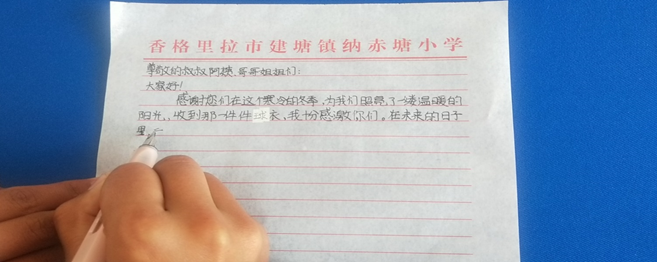 香格里拉市建塘镇纳赤塘小学
尊敬的叔叔阿姨、哥哥姐姐们:
大家好!
感谢您们在这个寒冷的冬季,为我们带来了一缕温暖的
阳光,收到那一件件 衣,我十分感激你们。在未来的日子
里,